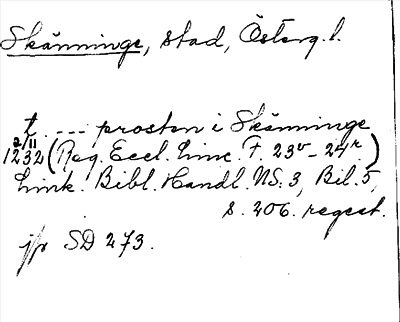 Skänninge, stad, Österg.l.
t. ---- prosten i Skänninge
2/11
1232 (Reg. Eccl. Linc. F. 23v - 24r)
Link. Bibl. Handl. NS: 3, Bil. 5,
s. 206. regest.
jfr SD 273.